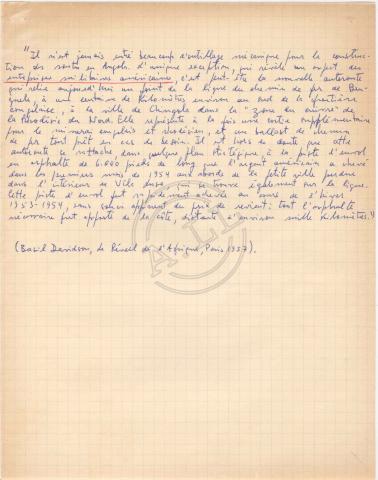 "Il n'est jamais entré beaucoup d'outillage mécanique pour la construc-
tion des routes en Angola. L'unique exception, qui révèle un aspect des
entreprises militaires américaines, c'est peut-être la nouvelle autoroute
qui relie aujourd'hui un point de la ligne du chemin de fer de Ben-
guela, à une centaine de kilomètres environ au sud de la frontière
congolaise, à la ville de Chingola dans la "zone du cuivre" de
la Rhodésie du Nord. Elle représente à la fois une sortie supplémentaire
pour le minerai congolais et rhodésien, et un ballast de chemin
de fer tout prêt en cas de besoin. Il est hors de doute que cette
autoroute se rattache, dans quelque plan stratégique, à la piste d'envol
en asphalte de 6.000 pieds de long que l'argent américain a achevé
dans les premiers mois de 1954 aux abords de la petite ville perdue
dans l'intérieur de Vila Luso, qui se trouve également sur la ligne.
Cette piste d'envol fut rapidement achevée au cours de l'hiver
1953-1954, sans souci apparent du prix de revient: tout l'asphalte
nécessaire fut apporté de la côte, distante d'environ mille kilomètres."
(Basil Davidson, Le Réveil de l'Afrique, Paris 1957).
A.L.